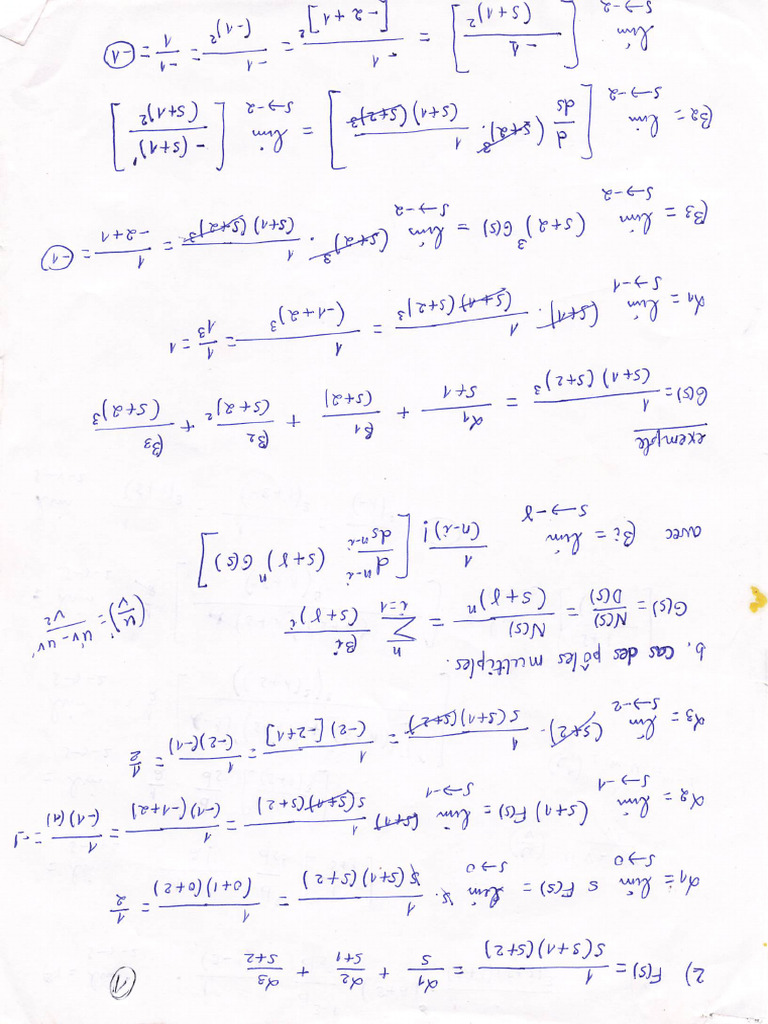 ①
2) F(s) = 1/(s(s+1)(s+2)) = α1/s + α2/(s+1) + α3/(s+2)
α1 = lim s→0 s F(s) = lim s→0 s. 1/(s(s+1)(s+2)) = 1/((0+1)(0+2)) = 1/2
α2 = lim s→-1 (s+1) F(s) = lim s→-1 (s+1) 1/(s(s+1)(s+2)) = 1/((-1)(-1+2)) = 1/((-1)(1)) = -1
α3 = lim s→-2 (s+2). 1/(s(s+1)(s+2)) = 1/((-2)[-2+1]) = 1/((-2)(-1)) = 1/2
b. cas des pôles multiples.
G(s) = N(s)/D(s) = N(s)/(s+γ)^n = Σ_{i=1}^{n} βi/(s+γ)^i (u/v)' = (u'v - uv')/v²
avec βi = lim s→-γ 1/(n-i)! [d^{n-i}/ds^{n-i} (s+γ)^n G(s)]
exemple
G(s) = 1/((s+1)(s+2)³) = α1/(s+1) + β1/(s+2) + β2/(s+2)² + β3/(s+2)³
α1 = lim s→-1 (s+1). 1/((s+1)(s+2)³) = 1/(-1+2)³ = 1/1³ = 1
β3 = lim s→-2 (s+2)³ G(s) = lim s→-2 (s+2)³ . 1/((s+1)(s+2)³) = 1/(-2+1) = -1
β2 = lim s→-2 [d/ds (s+2)³. 1/((s+1)(s+2)³)] = lim s→-2 [-(s+1)'/(s+1)²]
lim s→-2 [-1/(s+1)²] = -1/[-2+1]² = -1/(-1)² = -1/1 = -1